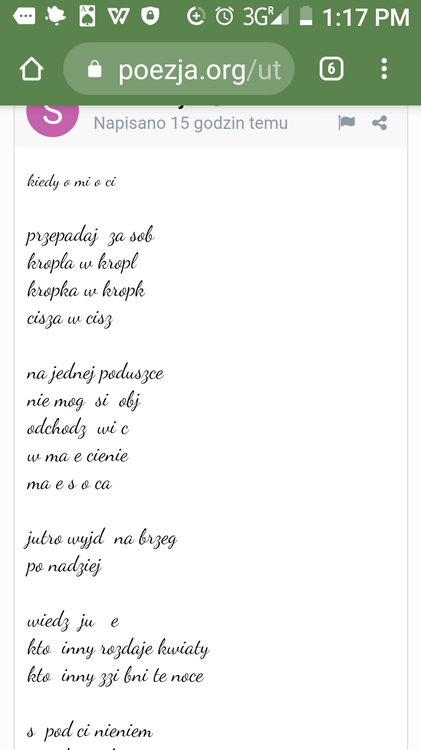 3G R 1:17 PM
poezja.org/ut 6
S
Napisano 15 godzin temu
kiedy o mi o ci
przepadaj za sob
kropla w kropl
kropka w kropk
cisza w cisz
na jednej poduszce
nie mog si obj
odchodz wi c
w ma e cienie
ma e s o ca
jutro wyjd na brzeg
po nadziej
wiedz ju e
kto inny rozdaje kwiaty
kto inny zzi bni te noce
s pod ci nieniem